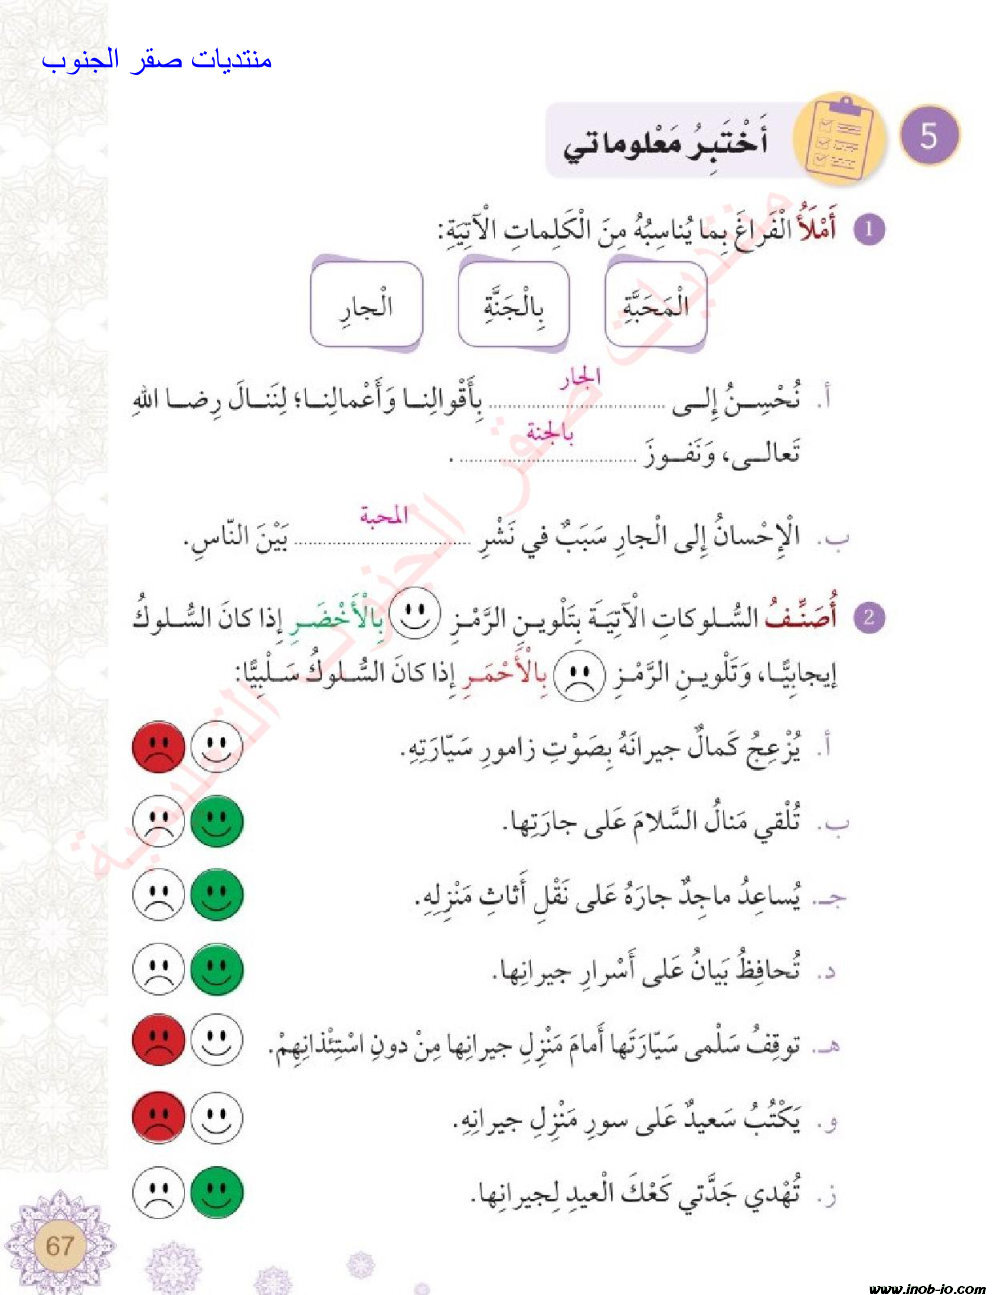 منتديات صقر الجنوب
5
أَخْتَبِرُ مَعْلوماتي
1 أَمْلَأُ الْفَراغَ بِما يُناسِبُهُ مِنَ الْكَلِماتِ الْآتِيَةِ:
الْمَحَبَّةِ بِالْجَنَّةِ الْجارِ
أ. نُحْسِـنُ إِلـى الجار بِأَقْوالِنـا وَأَعْمالِنـا؛ لِنَنـالَ رِضـا اللهِ
تَعالـى، وَنَفـوزَ بالجنة .
ب. الْإِحْسانُ إِلى الْجارِ سَبَبٌ في نَشْرِ المحبة بَيْنَ النّاسِ.
2 أُصَنِّـفُ السُّـلوكاتِ الْآتِيَـةَ بِتَلْويـنِ الرَّمْـزِ بِالْأَخْضَـرِ إِذا كانَ السُّـلوكُ
إيجابِيًّـا، وَتَلْويـنِ الرَّمْـزِ بِالْأَحْمَـرِ إِذا كانَ السُّـلوكُ سَـلْبِيًّا:
أ. يُزْعِجُ كَمالٌ جيرانَهُ بِصَوْتِ زامورِ سَيّارَتِهِ.
ب. تُلْقي مَنالُ السَّلامَ عَلى جارَتِها.
جـ. يُساعِدُ ماجِدٌ جارَهُ عَلى نَقْلِ أَثاثِ مَنْزِلِهِ.
د. تُحافِظُ بَيانُ عَلى أَسْرارِ جيرانِها.
هـ. توقِفُ سَلْمى سَيّارَتَها أَمامَ مَنْزِلِ جيرانِها مِنْ دونِ اسْتِئْذانِهِمْ.
و. يَكْتُبُ سَعيدٌ عَلى سورِ مَنْزِلِ جيرانِهِ.
ز. تُهْدي جَدَّتي كَعْكَ الْعيدِ لِجيرانِها.
منتديات صقر الجنوب التعليمية
67
www.jnob-jo.com